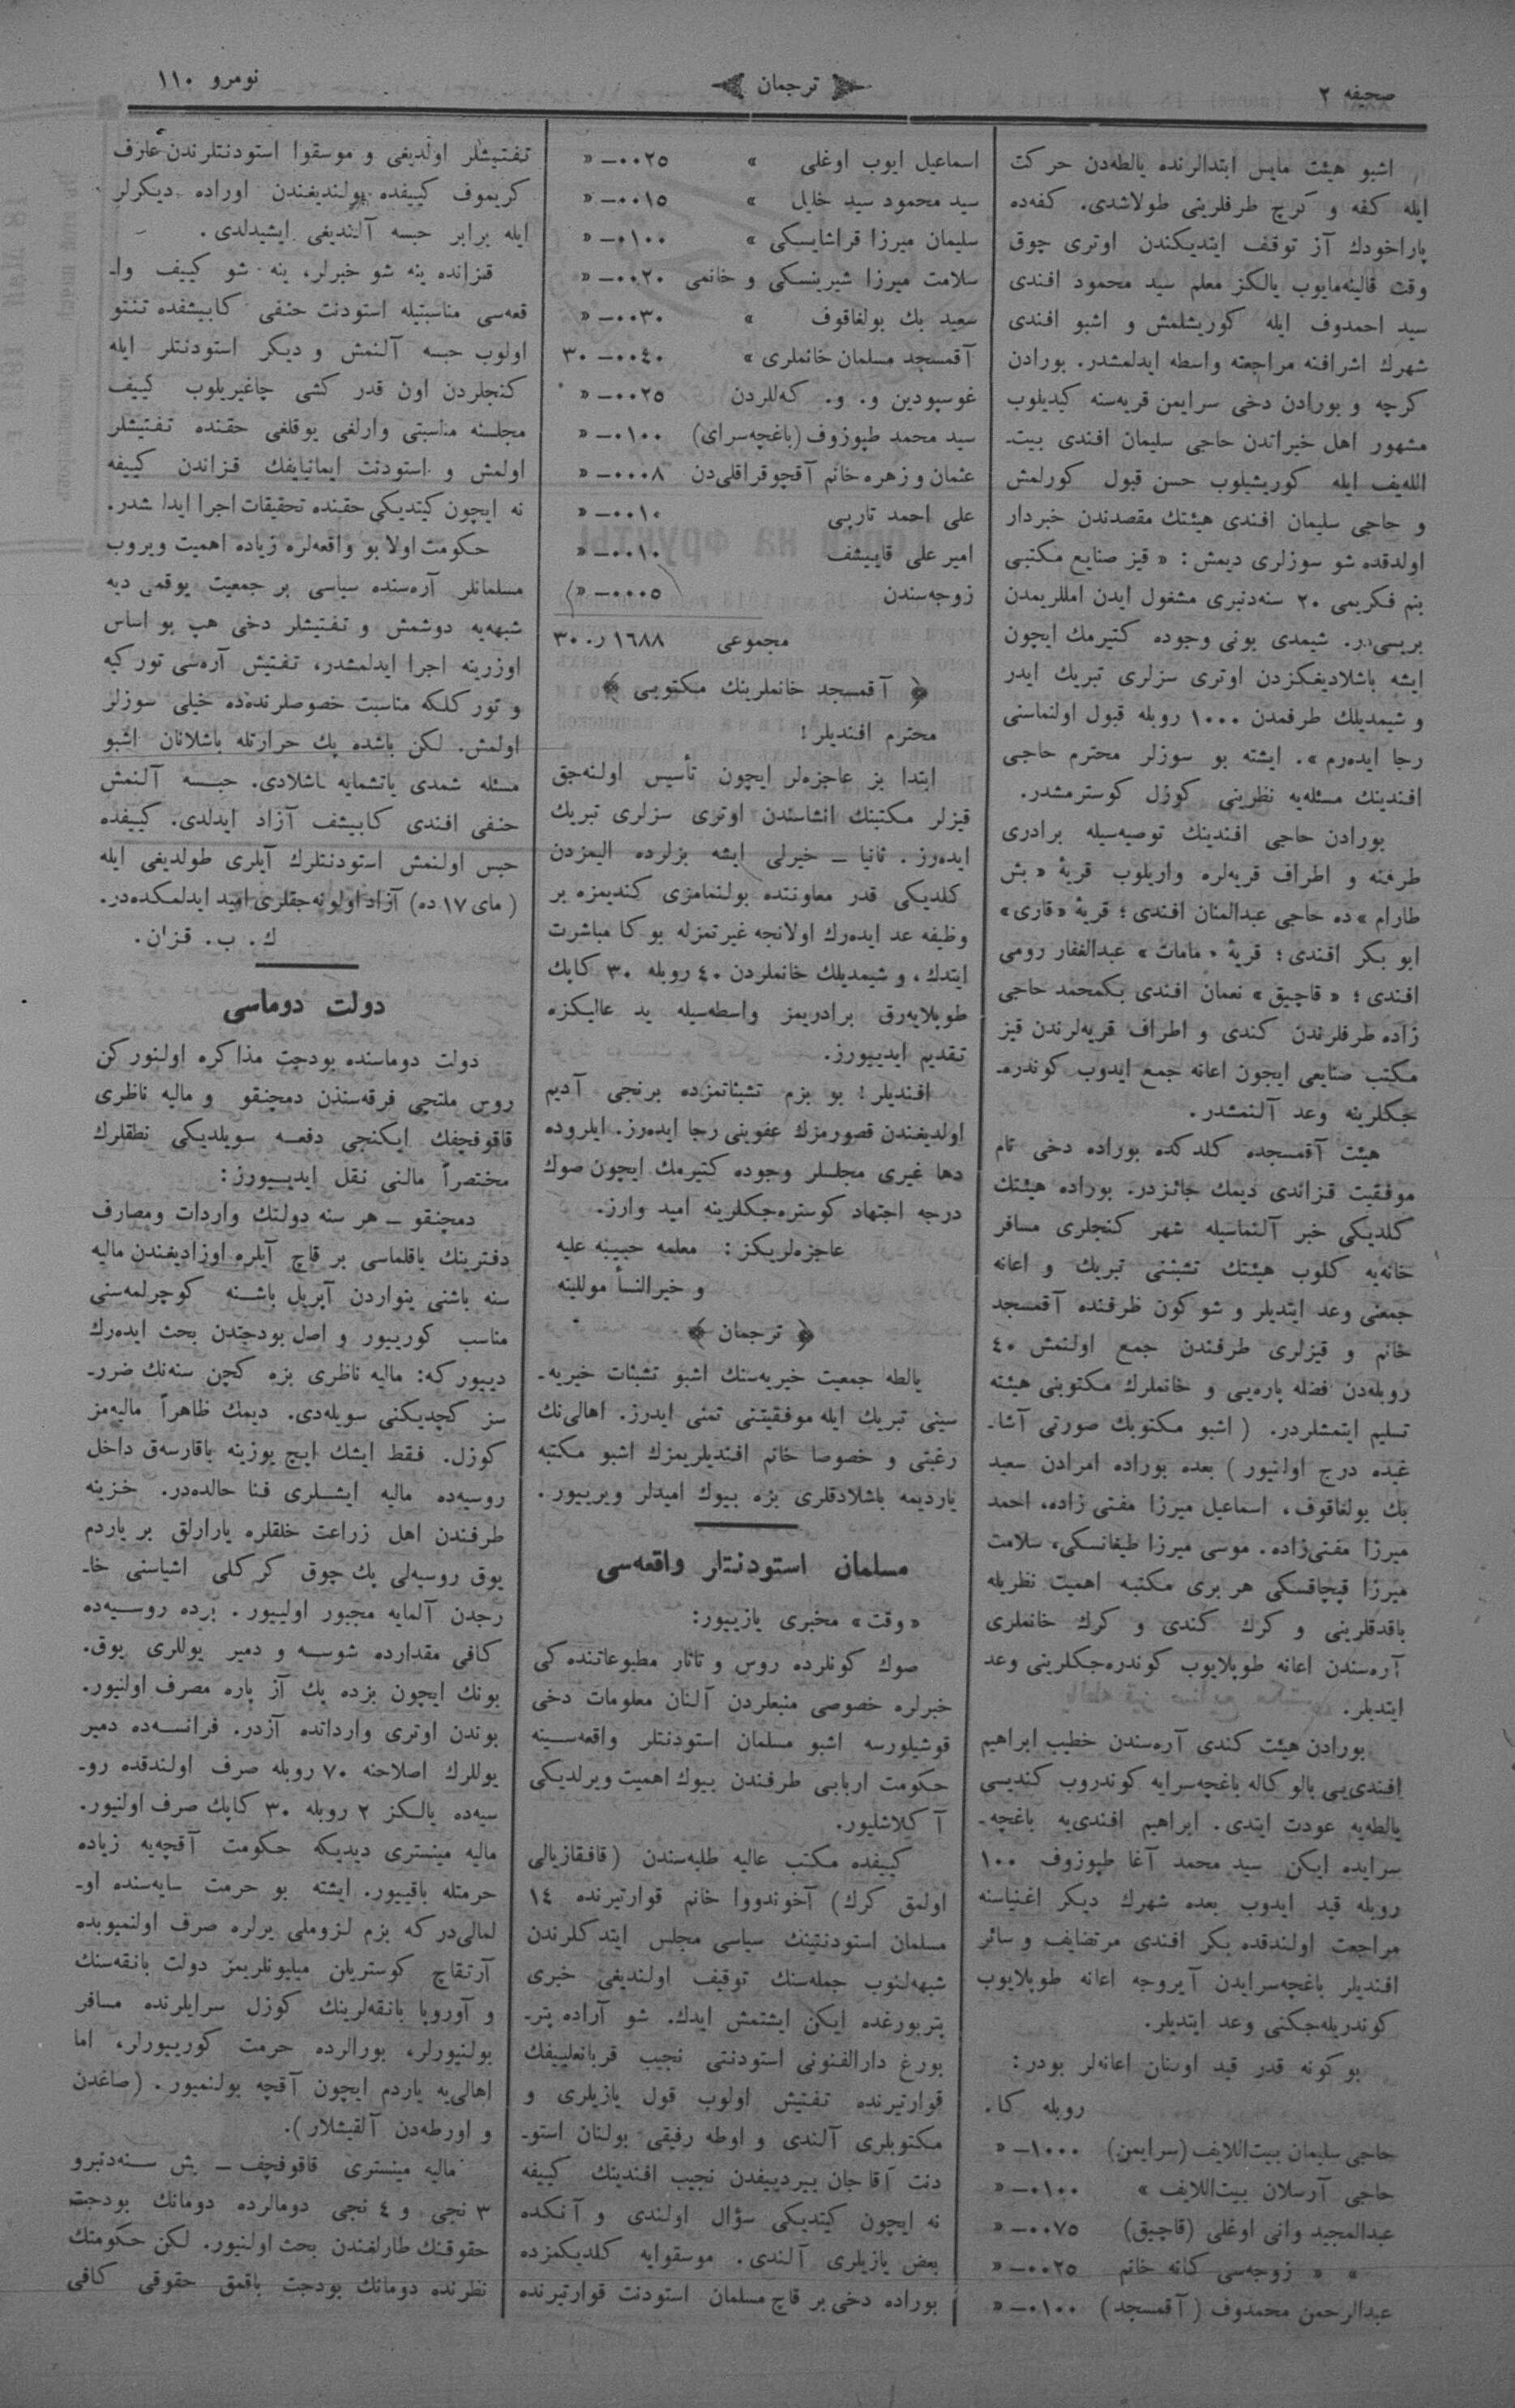 صحیفه ٢
ترجمان
نومرو ١١٠
اشبو هیئت مایس ابتدالرنده یالطه‌دن حرکت
ایله کفه و کرچ طرفلرینی طولاشدی. کفه‌ده
پاراخودك آز توقف ایتدیکندن اوتری چوق
وقت قالینه‌مایوب یالکز معلم سید محمود افندی
سید احمدوف ایله کوریشلمش و اشبو افندی
شهرك اشرافنه مراجعته واسطه ایدلمشدر. بورادن
کرچه و بورادن دخی سرایمن قریه‌سنه کیدیلوب
مشهور اهل خیراتدن حاجی سلیمان افندی بیت‌ـ
اللەیف ایله کوریشیلوب حسن قبول کورلمش
و حاجی سلیمان افندی هیئتك مقصدندن خبردار
اولدقده شو سوزلری دیمش: « قیز صنایع مکتبی
بنم فکریمی ٢٠ سنه‌دنبری مشغول ایدن امللریمدن
بریسی‌در. شیمدی بونی وجوده کتیرمك ایچون
ایشه باشلادیغکزدن اوتری سزلری تبریك ایدر
و شیمدیلك طرفمدن ١٠٠٠ روبله قبول اولنماسنی
رجا ایده‌رم ». ایشته بو سوزلر محترم حاجی
افندینك مسئله‌یه نظرینی کوزل کوسترمشدر.
بورادن حاجی افندینك توصیه‌سیله برادری
طرفنه و اطراف قریه‌لره واریلوب قریهٔ « بش
طارام »ده حاجی عبدالمنان افندی ؛ قریهٔ « قاری »
ابو بکر افندی ؛ قریهٔ « مامات » عبدالغفار رومی
افندی ؛ « قاچیق » نعمان افندی بكمحمد حاجی
زاده طرفلرندن کندی و اطراف قریه‌لرندن قیز
مکتب صنایعی ایچون اعانه جمع ایدوب کوندره‌ـ
جکلرینه وعد آلنمشدر.
هیئت آقمسجده کلدکده بوراده دخی تام
موفقیت قزاندی دیمك جائزدر. بوراده هیئتك
کلدیکی خبر آلنماسیله شهر کنجلری مسافر
خانه‌یه کلوب هیئتك تشبثنی تبریك و اعانه
جمعنی وعد ایتدیلر و شو کون ظرفنده آقمسجد
خانم و قیزلری طرفندن جمع اولنمش ٤٠
روبله‌دن فضله پاره‌یی و خانملرك مکتوبنی هیئته
تسلیم ایتمشلردر. ( اشبو مکتوبك صورتی آشاـ
غیده درج اولنیور ) بعده بوراده امرادن سعید
بك بولغاقوف، اسماعیل میرزا مفتی زاده، احمد
میرزا مفتی‌زاده، موسی میرزا طیغانسکی، سلامت
میرزا قپچاقسکی هر بری مکتبه اهمیت نظریله
باقدقلرینی و کرك کندی و کرك خانملری
آره‌سندن اعانه طوپلایوب کوندره‌جکلرینی وعد
ایتدیلر.
بورادن هیئت کندی آره‌سندن خطیب ابراهیم
افندی‌یی بالو کاله باغچه‌سرایه کوندروب کندیسی
یالطه‌یه عودت ایتدی. ابراهیم افندی‌یه باغچه‌ـ
سرایده ایکن سید محمد آغا طپوزوف ١٠٠
روبله قید ایدوب بعده شهرك دیکر اغنیاسنه
مراجعت اولندقده بکر افندی مرتضایف و سائر
افندیلر باغچه‌سرایدن آیروجه اعانه طوپلایوب
کوندریله‌جکنی وعد ایتدیلر.
بو کونه قدر قید اوسنان اعانه‌لر بودر:
روبله کا.
حاجی سلیمان بیت‌اللایف (سرایمن) ١٠٠٠ـ «
حاجی آرسلان بیت‌اللایف » ٠١٠٠ـ «
عبدالمجید وانی اوغلی (قاچیق) ٠٠٧٥ـ «
» « زوجه‌سی کانه خانم ٠٠٢٥ـ «
عبدالرحمن محمدوف ( آقمسجد ) ٠١٠٠ـ «
اسماعیل ایوب اوغلی » ٠٠٢٥ـ «
سید محمود سید خلیل » ٠٠١٥ـ «
سلیمان میرزا قراشایسکی » ٠١٠٠ـ «
سلامت میرزا شیرینسکی و خانمی ٠٠٢٠ـ «
سعید بك بولغاقوف » ٠٠٣٠ـ «
آقمسجد مسلمان خانملری » ٠٠٤٠ـ ٣٠
غوسپودین و. و. که‌للردن ٠٠٢٥ـ «
سید محمد طپوزوف (باغچه‌سرای) ٠١٠٠ـ «
عثمان و زهره خانم آقچوقراقلی‌دن ٠٠٠٨ـ «
علی احمد تارپی ٠٠١٠ـ «
امیر علی قاییشف ٠٠١٠ـ «
زوجه‌سندن ٠٠٠٥ـ «
مجموعی ١٦٨٨ ر. ٣٠
﴿ آقمسجد خانملرینك مکتوبی ﴾
محترم افندیلر!
ابتدا بز عاجزه‌لر ایچون تأسیس اولنه‌جق
قیزلر مکتبنك انشاسندن اوتری سزلری تبریك
ایده‌رز. ثانیا ـ خیرلی ایشه بزلرده الیمزدن
کلدیکی قدر معاونتده بولنمامزی کندیمزه بر
وظیفه عد ایده‌رك اولانجه غیرتمزله بو کا مباشرت
ایتدك، و شیمدیلك خانملردن ٤٠ روبله ٣٠ کاپك
طوپلایه‌رق برادریمز واسطه‌سیله ید عالیکزه
تقدیم ایدییورز.
افندیلر! بو بزم تشبثاتمزده برنجی آدیم
اولدیغندن قصورمزك عفوینی رجا ایده‌رز. ایلروده
دها غیری مجلسلر وجوده کتیرمك ایچون صوك
درجه اجتهاد کوستره‌جکلرینه امید وارز.
عاجزه‌لریکز : معلمه حبیبه علیه
و خیرالنسأ موللینه
﴿ ترجمان ﴾
یالطه جمعیت خیریه‌سنك اشبو تشبثات خیریه‌ـ
سینی تبریك ایله موفقیتنی تمنی ایدرز. اهالی‌نك
رغبتی و خصوصا خانم افندیلریمزك اشبو مکتبه
یاردیمه باشلادقلری بزه بیوك امیدلر ویرییور.
مسلمان استودنتلر واقعه‌سی
« وقت » مخبری یازییور:
صوك کونلرده روس و تاتار مطبوعاتنده کی
خبرلره خصوصی منبعلردن آلنان معلومات دخی
قوشیلورسه اشبو مسلمان استودنتلر واقعه‌سینه
حکومت اربابی طرفندن بیوك اهمیت ویرلدیکی
آ کلاشلیور.
کییفده مکتب عالیه طلبه‌سندن (قافقازیالی
اولمق کرك) آخوندووا خانم قوارتیرنده ١٤
مسلمان استودنتینك سیاسی مجلس ایتدکلرندن
شبهه‌لنوب جمله‌سنك توقیف اولندیغی خبری
پتربورغده ایکن ایشتمش ایدك. شو آراده پتر‌ـ
بورغ دارالفنونی استودنتی نجیب قربانعلییفك
قوارتیرنده تفتیش اولوب قول یازیلری و
مکتوبلری آلندی و اوطه رفیقی بولنان استوـ
دنت آقا جان بیردییفدن نجیب افندینك کییفه
نه ایچون کیتدیکی سؤال اولندی و آنکده
بعض یازیلری آلندی. موسقوایه کلدیکمزده
بوراده دخی بر قاچ مسلمان استودنت قوارتیرنده
تفتیشلر اولدیغی و موسقوا استودنتلرندن عارف
کریموف کییفده بولندیغندن اوراده دیکرلر
ایله برابر حبسه آلندیغی ایشیدلدی.
قزانده ینه شو خبرلر، ینه شو کییف واـ
قعه‌سی مناسبتیله استودنت حنفی کابیشفده تنتو
اولوب حبسه آلنمش و دیکر استودنتلر ایله
کنجلردن اون قدر کشی چاغیریلوب کییف
مجلسنه مناسبتی وارلغی یوقلغی حقنده تفتیشلر
اولمش و استودنت ایمانایفك قزاندن کییفه
نه ایچون کیتدیکی حقنده تحقیقات اجرا ایدلمشدر.
حکومت اولا بو واقعه‌لره زیاده اهمیت ویروب
مسلمانلر آره‌سنده سیاسی بر جمعیت یوقمی دیه
شبهه‌یه دوشمش و تفتیشلر دخی هپ بو اساس
اوزرینه اجرا ایدلمشدر، تفتیش آره‌سی تورکیه
و تورکلکه مناسبت خصوصلرنده‌ده خیلی سوزلر
اولمش. لکن باشده پك حرارتله باشلانان اشبو
مسئله شمدی یاتشمایه باشلادی. حبسه آلنمش
حنفی افندی کابیشف آزاد ایدلدی. کییفده
حبس اولنمش استودنتلرك آیلری طولدیغی ایله
( مای ١٧ ده) آزاد اولونه‌جقلری امید ایدلمکده‌در.
ك. ب. قزان.
دولت دوماسی
دولت دوماسنده بودجت مذاکره اولنورکن
روس ملتچی فرقه‌سندن دمچنقو و مالیه ناظری
قاقوفچفك ایکنجی دفعه سویلدیکی نطقلرك
مختصراً مالنی نقل ایدییورز:
دمچنقو ـ هر سنه دولتك واردات ومصارف
دفترینك یاقلماسی بر قاچ آیلره اوزادیغندن مالیه
سنه باشنی ینواردن آپریل باشنه کوچرلمه‌سنی
مناسب کوریبور و اصل بودجتدن بحث ایده‌رك
دییور که: مالیه ناظری بزه کچن سنه‌نك ضرر‌ـ
سز کچدیکنی سویله‌دی. دیمك ظاهراً مالیه‌مز
کوزل. فقط ایشك ایچ یوزینه باقارسه‌ق داخل
روسیه‌ده مالیه ایشلری فنا حالده‌در. خزینه
طرفندن اهل زراعت خلقلره یارارلق بر یاردم
یوق روسیه‌لی پك چوق کرکلی اشیاسنی خاـ
رجدن آلمایه مجبور اولییور. برده روسیه‌ده
کافی مقدارده شوسه و دمیر یوللری یوق.
بونك ایچون بزده پك آز پاره مصرف اولنیور.
بوندن اوتری وارداتده آزدر. فرانسه‌ده دمیر
یوللرك اصلاحنه ٧٠ روبله صرف اولندقده روـ
سیه‌ده یالکز ٢ روبله ٣٠ کاپك صرف اولنیور.
مالیه مینستری دیدیکه حکومت آقچه‌یه زیاده
حرمتله باقییور. ایشته بو حرمت سایه‌سنده اوـ
لمالی‌در که بزم لزوملی یرلره صرف اولنمیوبده
آرتقاچ کوستریلن میلیونلریمز دولت بانقه‌سنك
و آوروپا بانقه‌لرینك کوزل سرایلرنده مسافر
بولنیورلر، بورالرده حرمت کوریبورلر، اما
اهالی‌یه یاردم ایچون آقچه بولنمیور. (صاغدن
و اورطه‌دن آلقیشلار).
مالیه مینستری قاقوفچف ـ بش سنه‌دنبرو
٣ نجی و ٤ نجی دومالرده دومانك بودجت
حقوقنك طارلغندن بحث اولنیور. لکن حکومتك
نظرنده دومانك بودجت باقمق حقوقی کافی